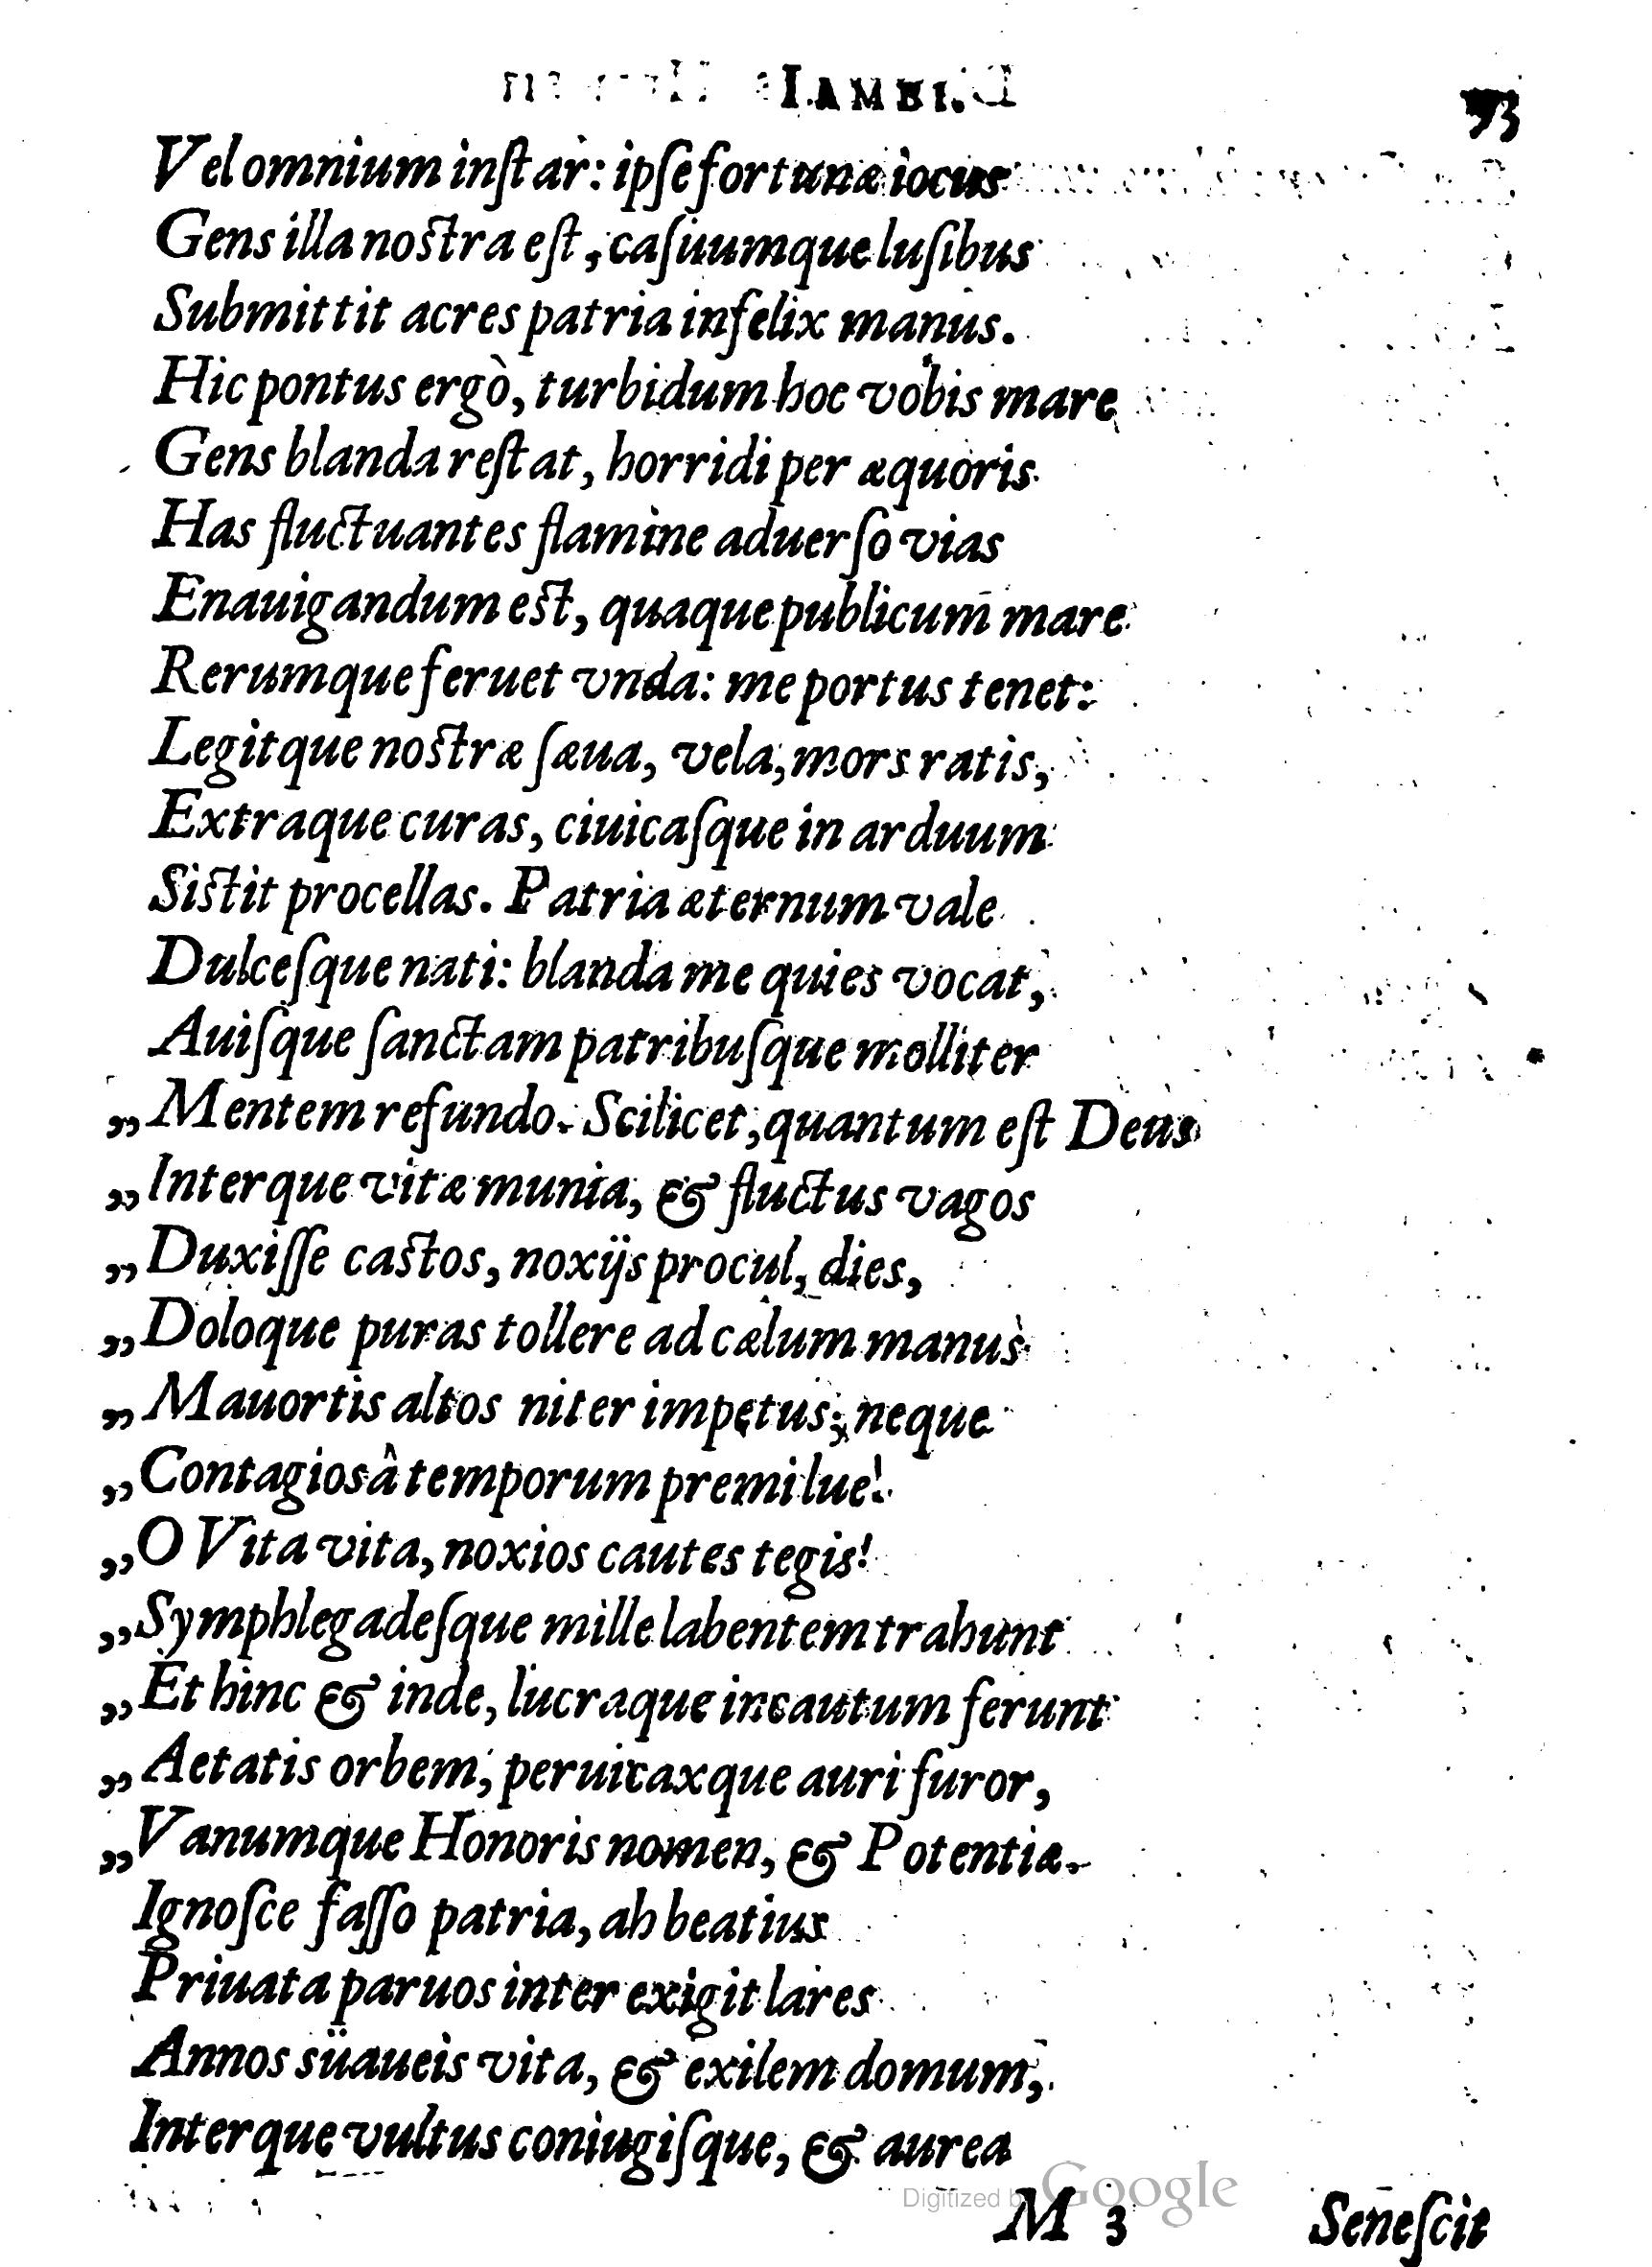 IAMBI. 93
Vel omnium inſtar: ipſe fortunæ iocus
Gens illa noſtra eſt, caſuumque luſibus
Submittit acres patria infelix manus.
Hic pontus ergò, turbidum hoc vobis mare
Gens blanda reſtat, horridi per æquoris
Has fluctuantes flamine aduerſo vias
Enauigandum eſt, quaque publicum mare
Rerumque feruet vnda: me portus tenet:
Legitque noſtræ ſæua, vela, mors ratis,
Extraque curas, ciuicaſque in arduum
Siſtit procellas. Patria æternum vale
Dulceſque nati: blanda me quies vocat,
Auiſque ſanctam patribuſque molliter
„Mentem refundo. Scilicet, quantum eſt Deus
„Interque vitæ munia, & fluctus vagos
„Duxiſſe caſtos, noxijs procul, dies,
„Doloque puras tollere ad cælum manus
„Mauortis altos niter impetus; neque
„Contagiosâ temporum premi lue!
„O Vita vita, noxios cautes tegis!
„Symphlegadeſque mille labentem trahunt
„Et hinc & inde, lucraque incautum ferunt
„Aetatis orbem, peruicaxque auri furor,
„Vanumque Honoris nomen, & Potentiæ.
Ignoſce faſſo patria, ah beatius
Priuata paruos inter exigit lares
Annos süaueis vita, & exilem domum,
Interque vultus coniugiſque, & aurea
M 3 Seneſcit
Digitized by Google